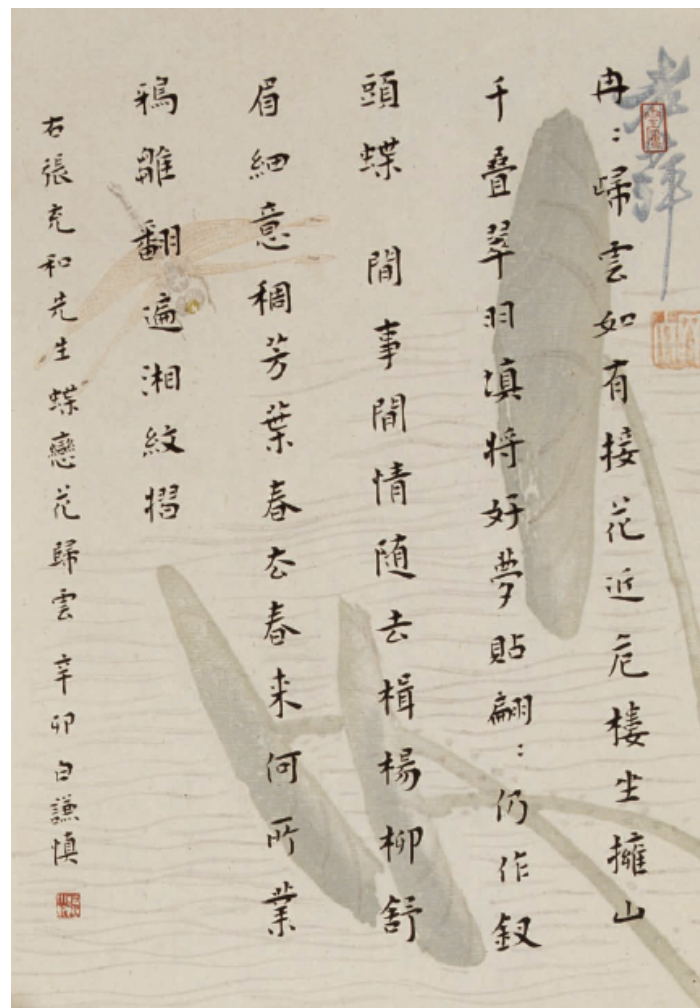 冉：歸雲如有接花近危樓坐擁山
千疊翠羽填将好夢貼翩：仍作釵
頭蝶 閒事閒情随去楫楊柳舒
眉細意稠芳葉春去春来何所業
鴉雛翻遍湘紋摺
右張充和先生蝶戀花歸雲 辛卯白謙慎